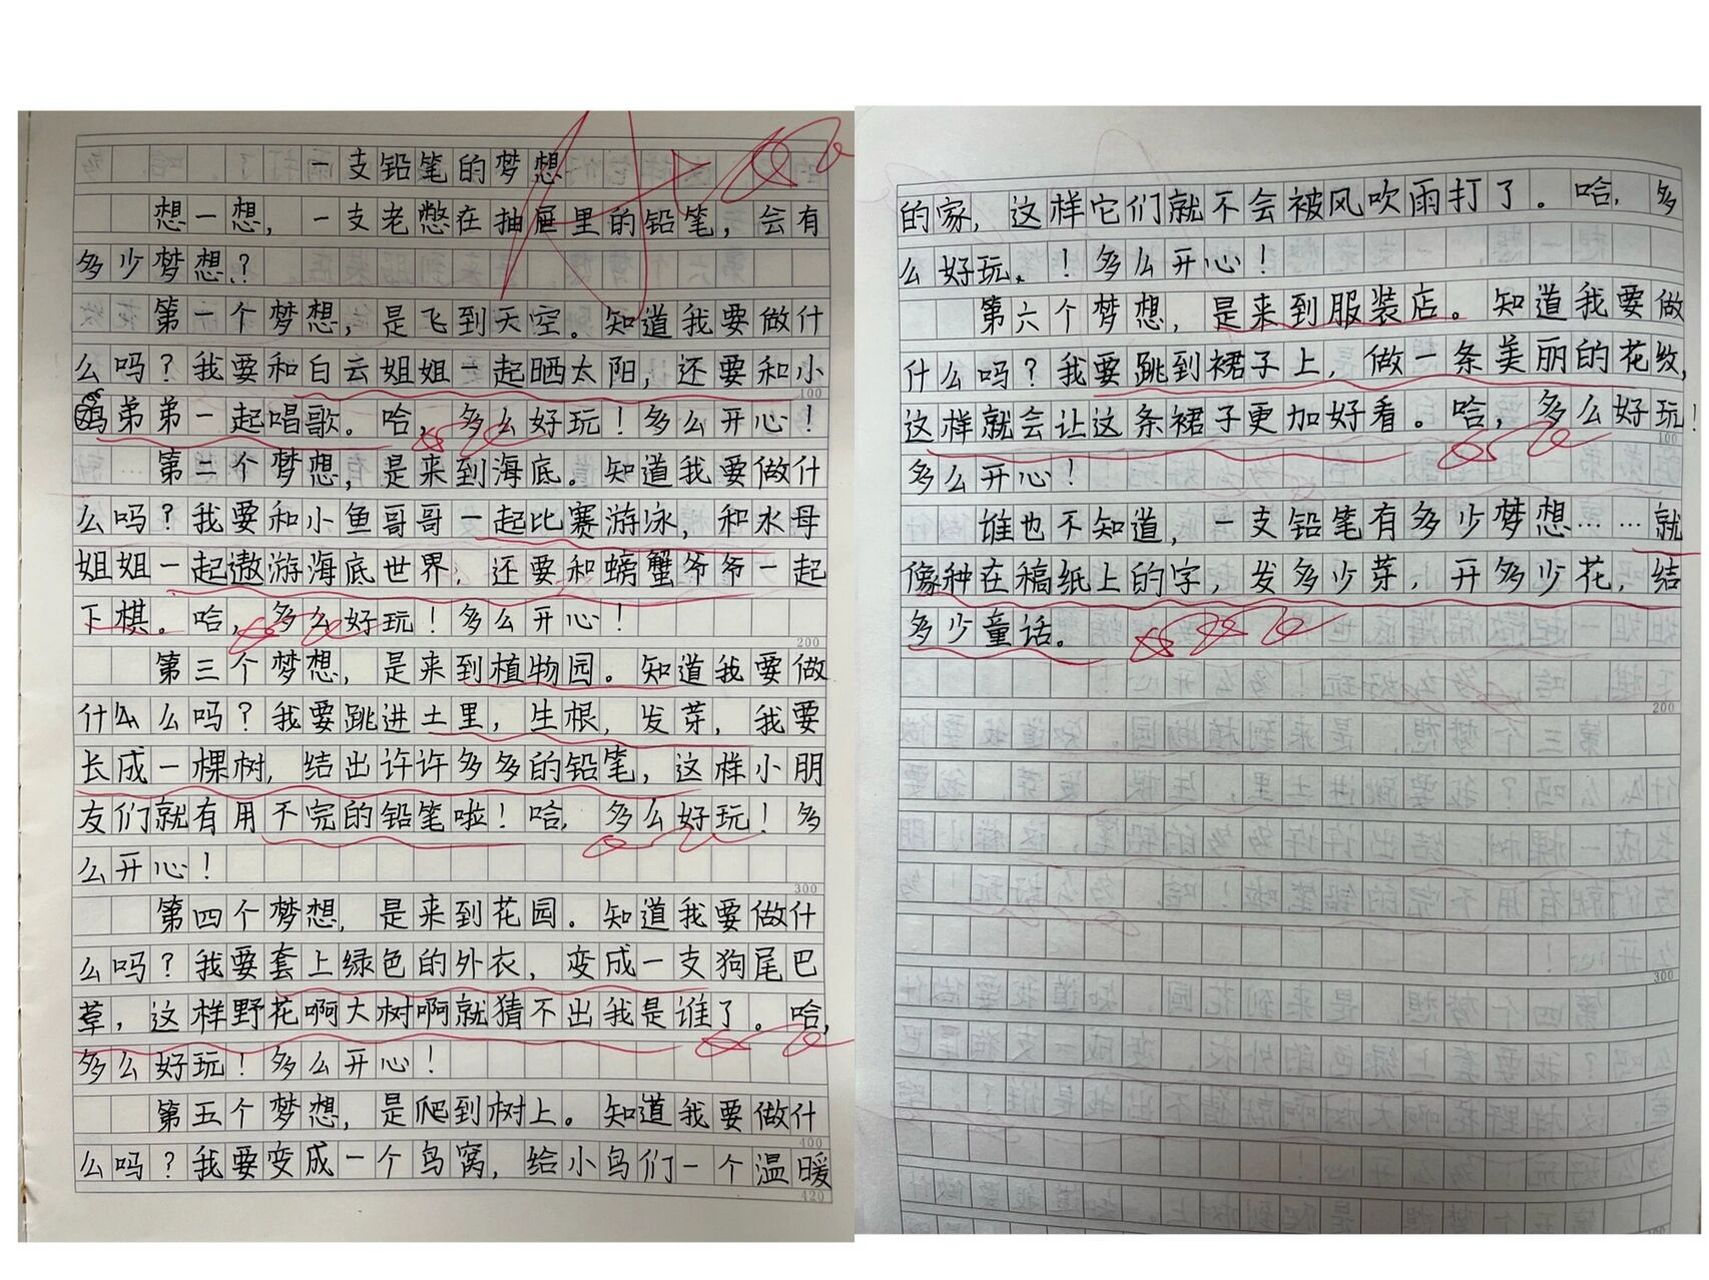 一支铅笔的梦想
想一想，一支老憋在抽屉里的铅笔，会有
多少梦想？
第一个梦想，是飞到天空。知道我要做什
么吗？我要和白云姐姐一起晒太阳，还要和小
弟弟一起唱歌。哈，多么好玩！多么开心！
第二个梦想，是来到海底。知道我要做什
么吗？我要和小鱼哥哥一起比赛游泳，和水母
姐姐一起遨游海底世界，还要和螃蟹爷爷一起
下棋。哈，多么好玩！多么开心！
第三个梦想，是来到植物园。知道我要做
什么吗？我要跳进土里，生根，发芽，我要
长成一棵树，结出许许多多的铅笔，这样小朋
友们就有用不完的铅笔啦！哈，多么好玩！多
么开心！
第四个梦想，是来到花园。知道我要做什
么吗？我要套上绿色的外衣，变成一支狗尾巴
草，这样野花啊大树啊就猜不出我是谁了。哈，
多么好玩！多么开心！
第五个梦想，是爬到树上。知道我要做什
么吗？我要变成一个鸟窝，给小鸟们一个温暖
的家，这样它们就不会被风吹雨打了。哈，多
么好玩。！多么开心！
第六个梦想，是来到服装店。知道我要做
什么吗？我要跳到裙子上，做一条美丽的花纹，
这样就会让这条裙子更加好看。哈，多么好玩！
多么开心！
谁也不知道，一支铅笔有多少梦想……就
像种在稿纸上的字，发多少芽，开多少花，结
多少童话。
100
200
300
400
420
100
200
300
A+